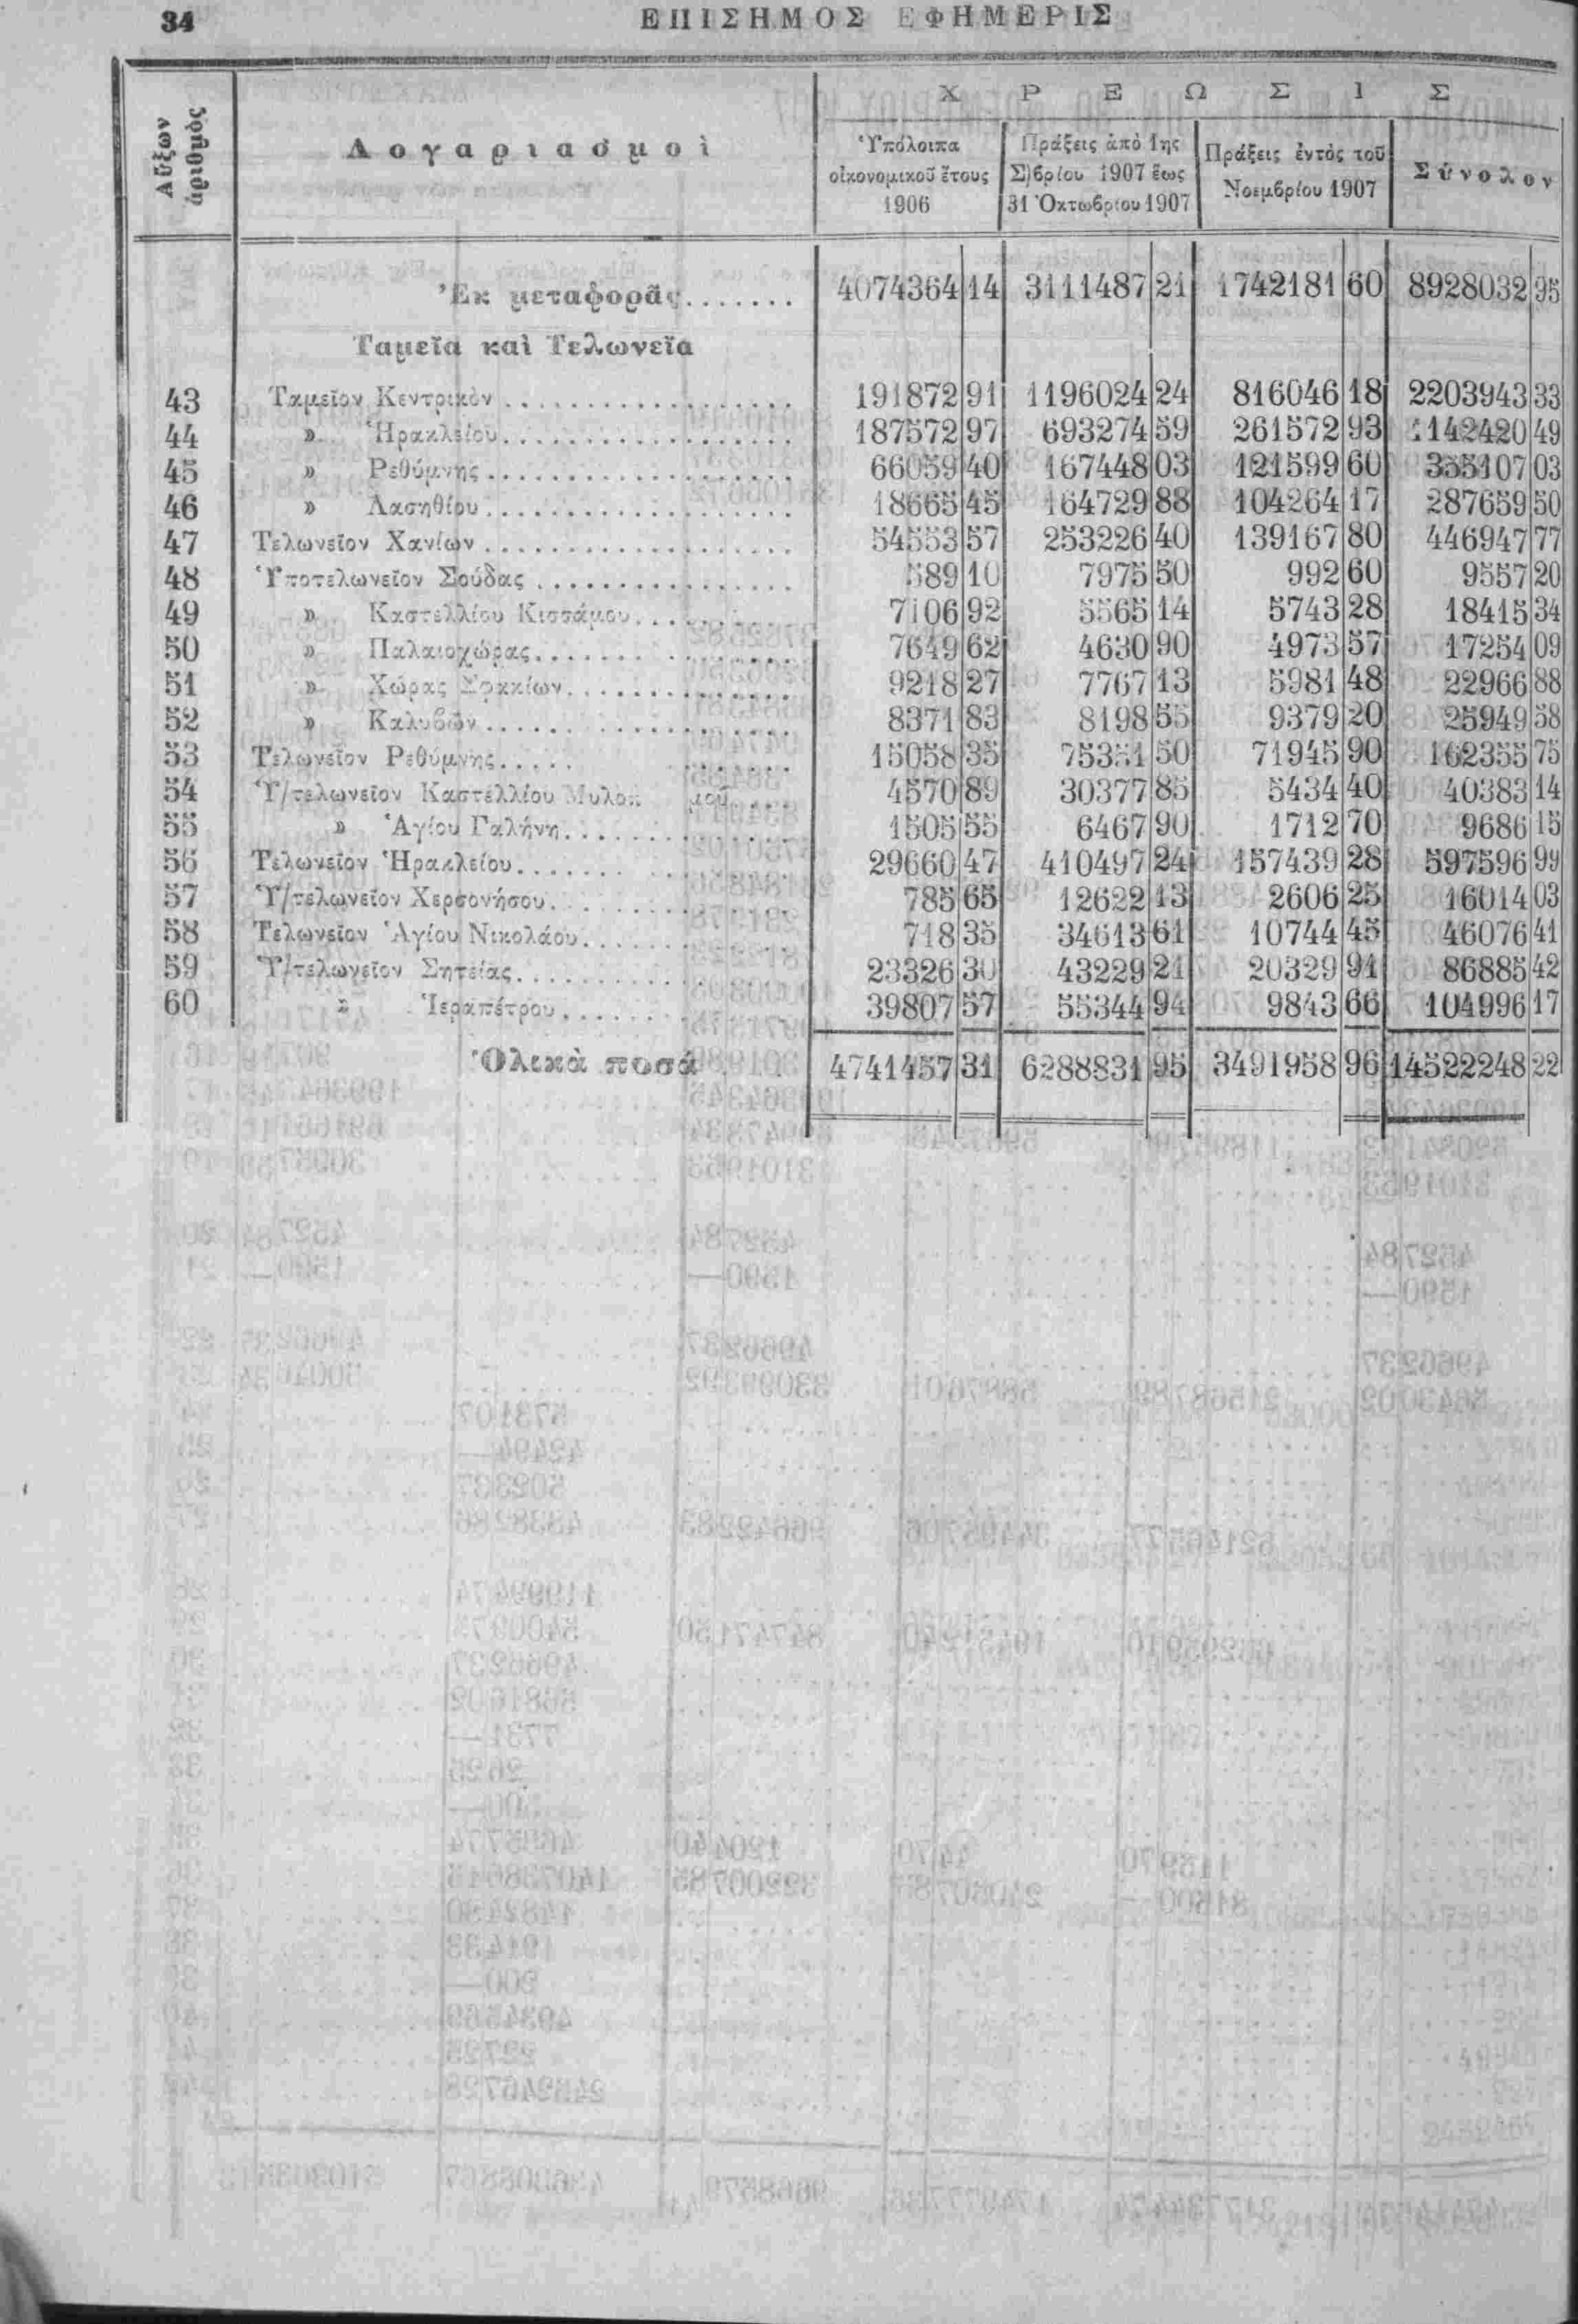 34
ΕΠΙΣΗΜΟΣ ΕΦΗΜΕΡΙΣ
Αὔξων ἀριθμὸς
Λογαριασμοὶ
ΧΡΕΩΣΙΣ
Ὑπόλοιπα οἰκονομικοῦ ἔτους 1906
Πράξεις ἀπὸ 1ης Σ)βρίου 1907 ἕως 31 Ὀκτωβρίου 1907
Πράξεις ἐντὸς τοῦ Νοεμβρίου 1907
Σύνολον
Ἐκ μεταφορᾶς....... 4074364 14 3111487 21 1742181 60 8928032 95
Ταμεῖα καὶ Τελωνεῖα
43 Ταμεῖον Κεντρικὸν 191872 91 1196024 24 816046 18 2203943 33
44 » Ἡρακλείου 187572 97 693274 59 261572 93 1142420 49
45 » Ρεθύμνης 66059 40 167448 03 121599 60 355107 03
46 » Λασηθίου 18665 45 164729 88 104264 17 287659 50
47 Τελωνεῖον Χανίων 54553 57 253226 40 139167 80 446947 77
48 Ὑποτελωνεῖον Σούδας 589 10 7975 50 992 60 9557 20
49 » Καστελλίου Κισσάμου 7106 92 5565 14 5743 28 18415 34
50 » Παλαιοχώρας 7649 62 4630 90 4973 57 17254 09
51 » Χώρας Σφακίων 9218 27 7767 13 5981 48 22966 88
52 » Καλυβῶν 8371 83 8198 55 9379 20 25949 58
53 Τελωνεῖον Ρεθύμνης 15058 35 75351 50 71945 90 162355 75
54 Ὑ/τελωνεῖον Καστελλίου Μυλοπ μοῦ 4570 89 30377 85 5434 40 40383 14
55 » Ἁγίου Γαλήνη 1505 55 6467 90 1712 70 9686 15
56 Τελωνεῖον Ἡρακλείου 29660 47 410497 24 157439 28 597596 99
57 Ὑ/τελωνεῖον Χερσονήσου 785 65 12622 13 2606 25 16014 03
58 Τελωνεῖον Ἁγίου Νικολάου 718 35 34613 61 10744 45 46076 41
59 Ὑ/τελωνεῖον Σητείας 23326 30 43229 21 20329 91 86885 42
60 » Ἱεραπέτρου 39807 57 55344 94 9843 66 104996 17
Ὁλικὰ ποσά 4741457 31 6288831 95 3491958 96 14522248 22